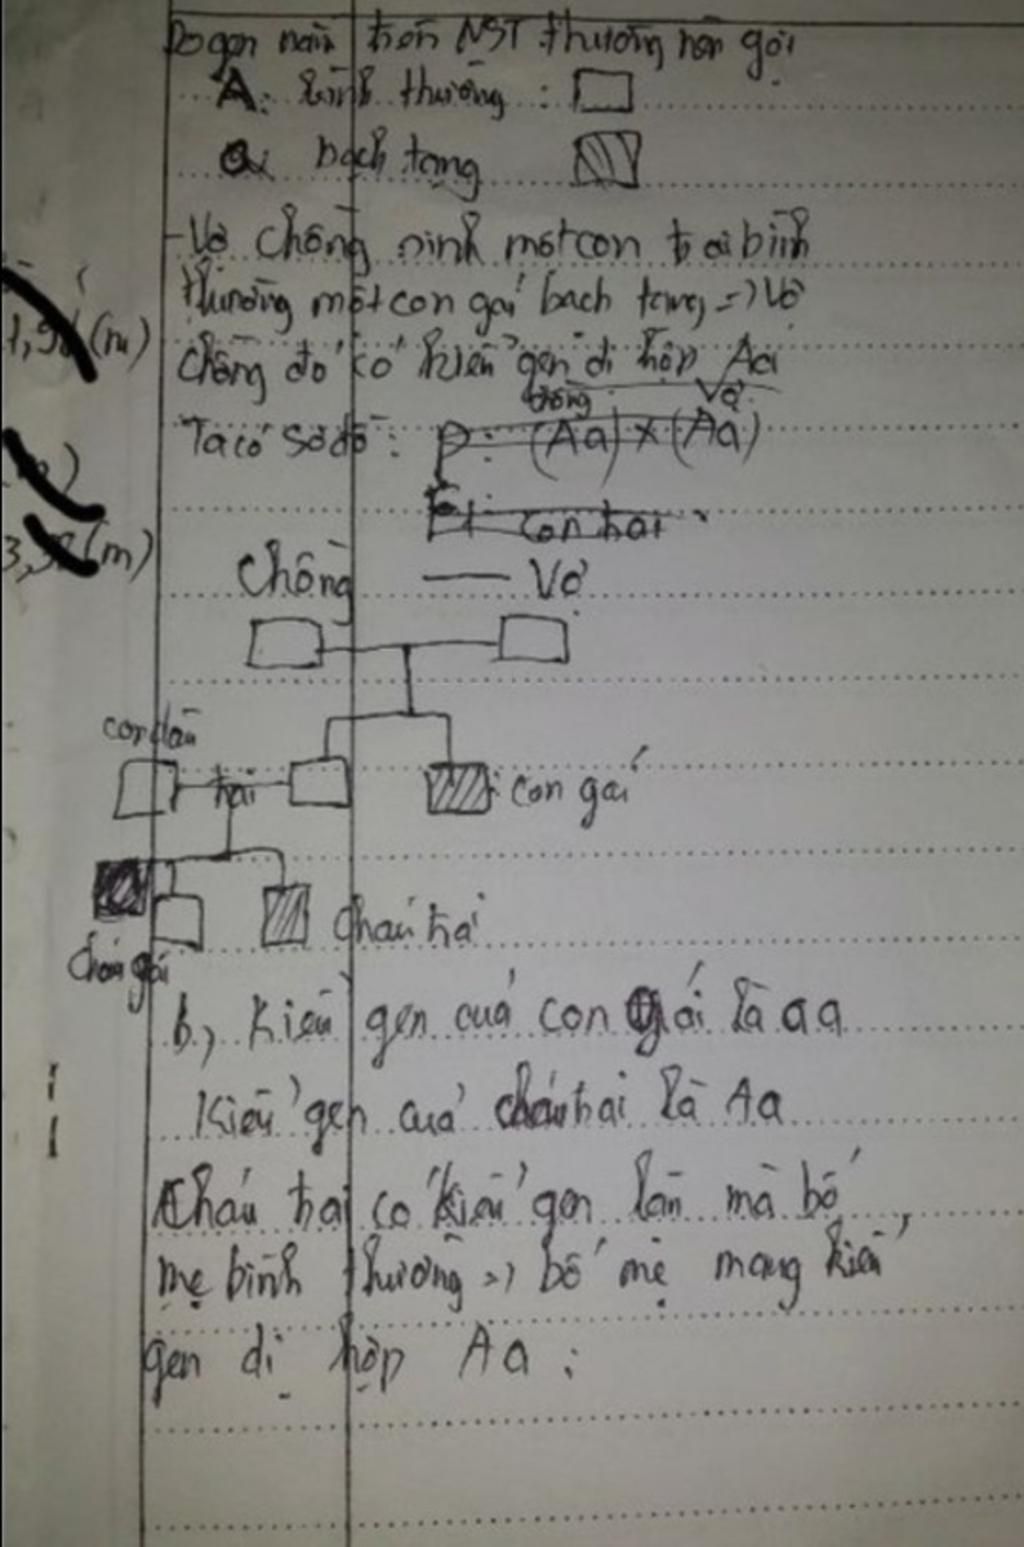 Do gen nằm trên NST thường nên gọi
A: bình thường :
a: bạch tạng
- Vợ chồng sinh một con trai bình
thường một con gái bạch tạng => Vợ
chồng đó có kiểu gen dị hợp Aa
chồng Vợ
Ta có sơ đồ: P: (Aa) x (Aa)
F1 con trai
Chồng — Vợ
con dâu
trai : con gái
cháu trai
cháu gái
b, Kiểu gen của con gái là aa
Kiểu gen của cháu trai là Aa
Cháu trai có kiểu gen lặn mà bố
mẹ bình thường => bố mẹ mang kiểu
gen dị hợp Aa ;
1,98 (m)
(m)
(m)